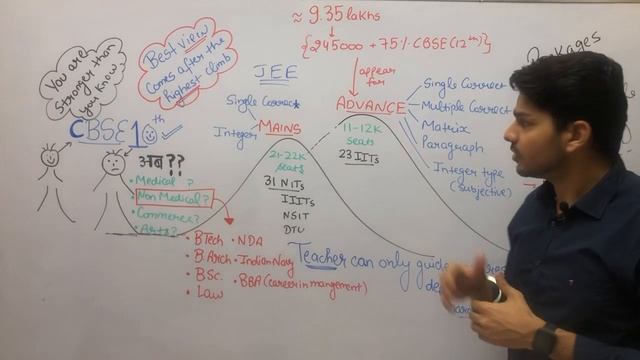 ≈ 9.35 lakhs
{245000 + 75% CBSE(12th)}
appear
for
You are
Stronger than
you know!
Best view
comes after the
highest climb
CBSE 10th
अब ??
• Medical ?
• Non Medical?
• Commerce?
• Arts?
JEE
Single Correct
Integer
MAINS
21-22K
seats
31 NITs
IIITs
NSIT
DTU
ADVANCE
11-12K
seats
23 IITs
Single Correct
Multiple Correct
Matrix
Paragraph
Integer type
(subjective)
Packages
• BTech • NDA
• B.Arch • Indian Navy
• BSc. • BBA (career in mangement)
• Law
Teacher can only guide